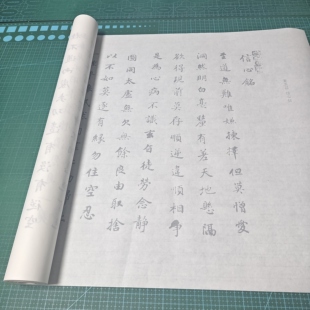 信心銘
至道無難唯嫌揀擇但莫憎愛
洞然明白毫釐有差天地懸隔
欲得現前莫存順逆違順相爭
是為心病不識玄旨徒勞念靜
圓同太虛無欠無餘良由取捨
以不如莫逐有緣勿住空忍